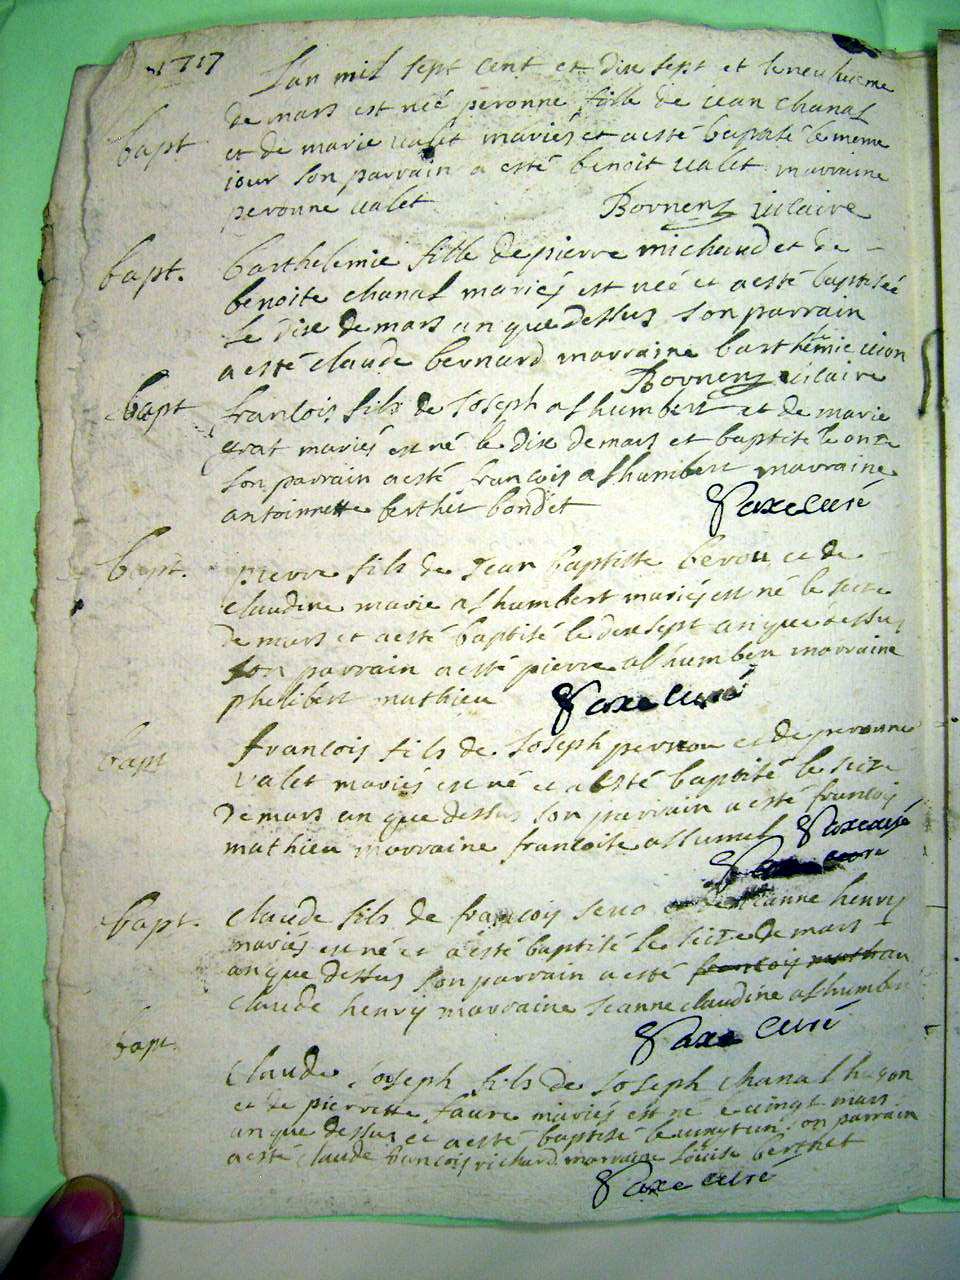 1717
Lan mil sept cent et dix sept et le neufieme
bapt de mars est née peronne fille de iean chanal
et de marie valet mariés et a esté baptisé le meme
iour son parrain a esté benoit valet marraine
peronne valet Bornens vicaire
bapt. barthelemie fille de pierre michaud et de
benoite chanal mariés est née et a esté baptisée
le dix de mars an que dessus son parrain
a esté claude bernard marraine barthemie
Bornens vicaire
bapt francois fils de Joseph alhumbert et de marie
mariés est né le dix de mars et baptisé le onze
son parrain a esté francois alhumbert marraine
antoinette berthet bondet Saxe curé
bapt. pierre fils de Jean baptiste et de
claudine marie alhumbert mariés est né le seize
de mars et a esté baptisé le dixsept an que dessus
son parrain a esté pierre alhumbert marraine
philibert mathieu Saxe curé
bapt francois fils de Joseph perrou et de peronne
valet mariés est né et a esté baptisé le seize
de mars an que dessus son parrain a esté francois
mathieu marraine francoise Saxe curé
Saxe curé
bapt. claude fils de francois et de Jeanne henry
mariés est né et a esté baptisé le seize de mars
an que dessus son parrain a esté francois
claude henry marraine Jeanne claudine alhumbert
Saxe curé
bapt.
claude Joseph fils de Joseph chanal
et de pierrette faure mariés est né le vingt mars
an que dessus et a esté baptisé le vingt un son parrain
a esté claude francois richard marraine louise berthet
Saxe curé